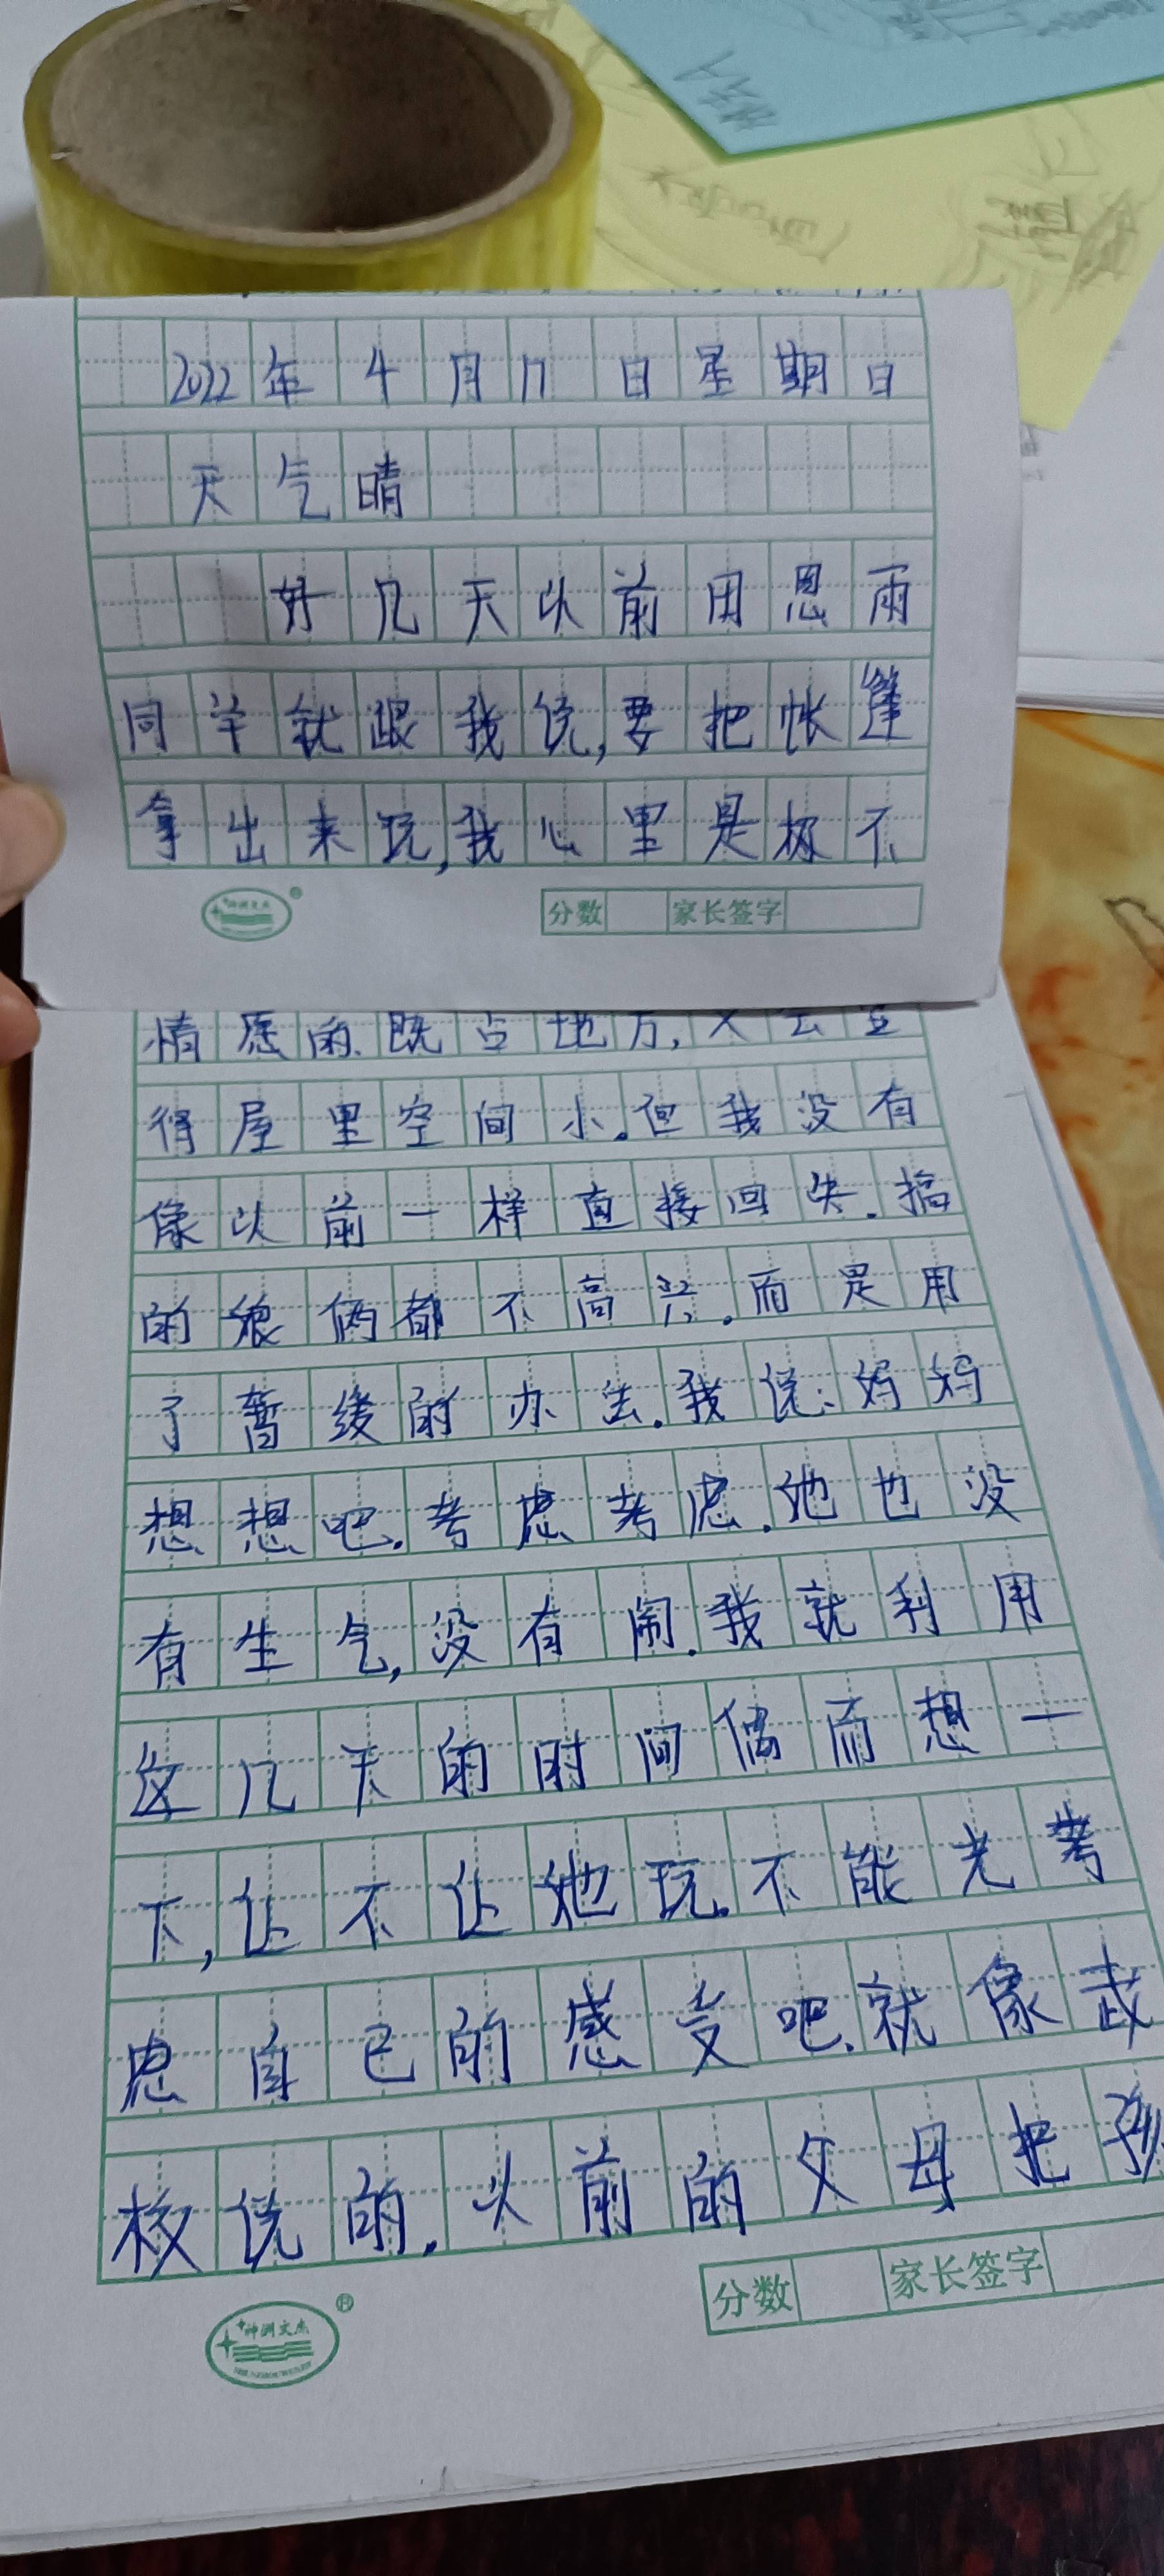 2022年4月17日星期日
天气晴
好几天以前田恩雨
同学就跟我说,要把帐篷
拿出来玩,我心里是极不
分数 家长签字
情愿的.既占地方,又会显
得屋里空间小.但我没有
像以前一样直接回失.搞
的娘俩都不高兴.而是用
了暂缓的办法.我说:妈妈
想想吧.考虑考虑.她也没
有生气,没有闹.我就利用
这几天的时间偶而想一
下,让不让她玩.不能光考
虑自己的感受吧.就像武
校说的.以前的父母把孩
神洲文杰
分数 家长签字